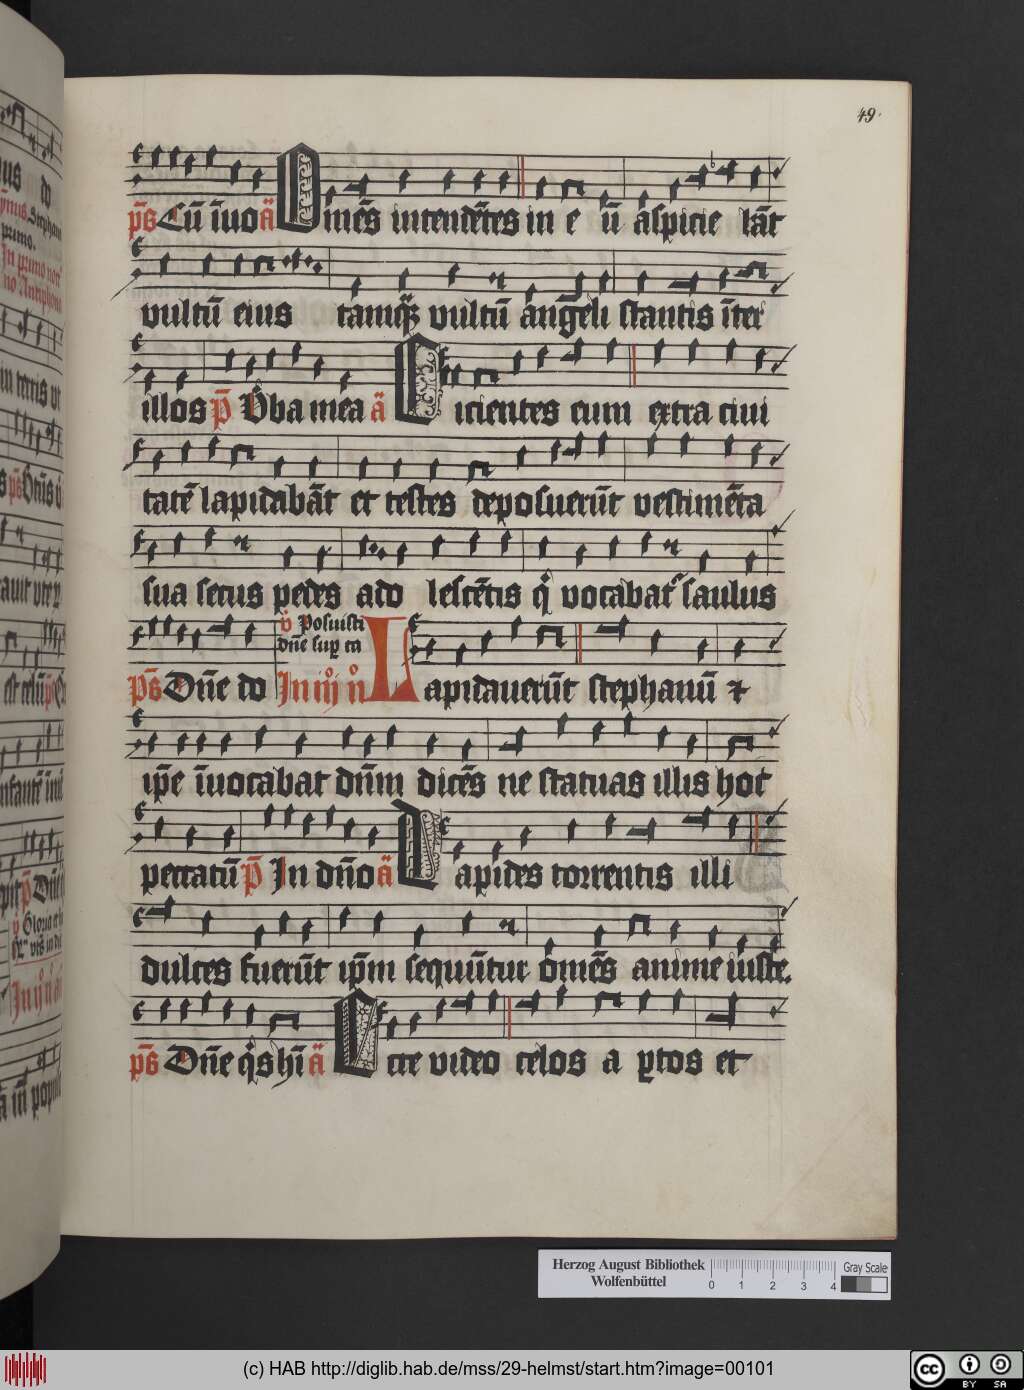 49.
ps Cū īuo a Omēs intendētes in e ū aspicie bāt
vultū eius tamq̃ vultū angeli stantis īter
illos p̄ Vba mea a Eicientes eum extra ciui
tatē lapidabāt et testes deposuerūt vestimēta
sua secus pedes ado lescētis q̇ vocabat saulus
v̇ Posuisti
dñe sup ca
ps Dñe do In iij n̊ Lapidauerūt stephanū ⁊
ip̄e īuocabat dñm dicēs ne statuas illis hoc
peccatū p̄ In dño a Lapides torrentis illi
dulces fuerūt ip̄m sequūtur omēs anime iuste.
ps Dñe q̇s hī a Ecce video celos a ꝑtos et
Herzog August Bibliothek
Wolfenbüttel
0 1 2 3 4
Gray Scale
(c) HAB http://diglib.hab.de/mss/29-helmst/start.htm?image=00101
cc BY SA